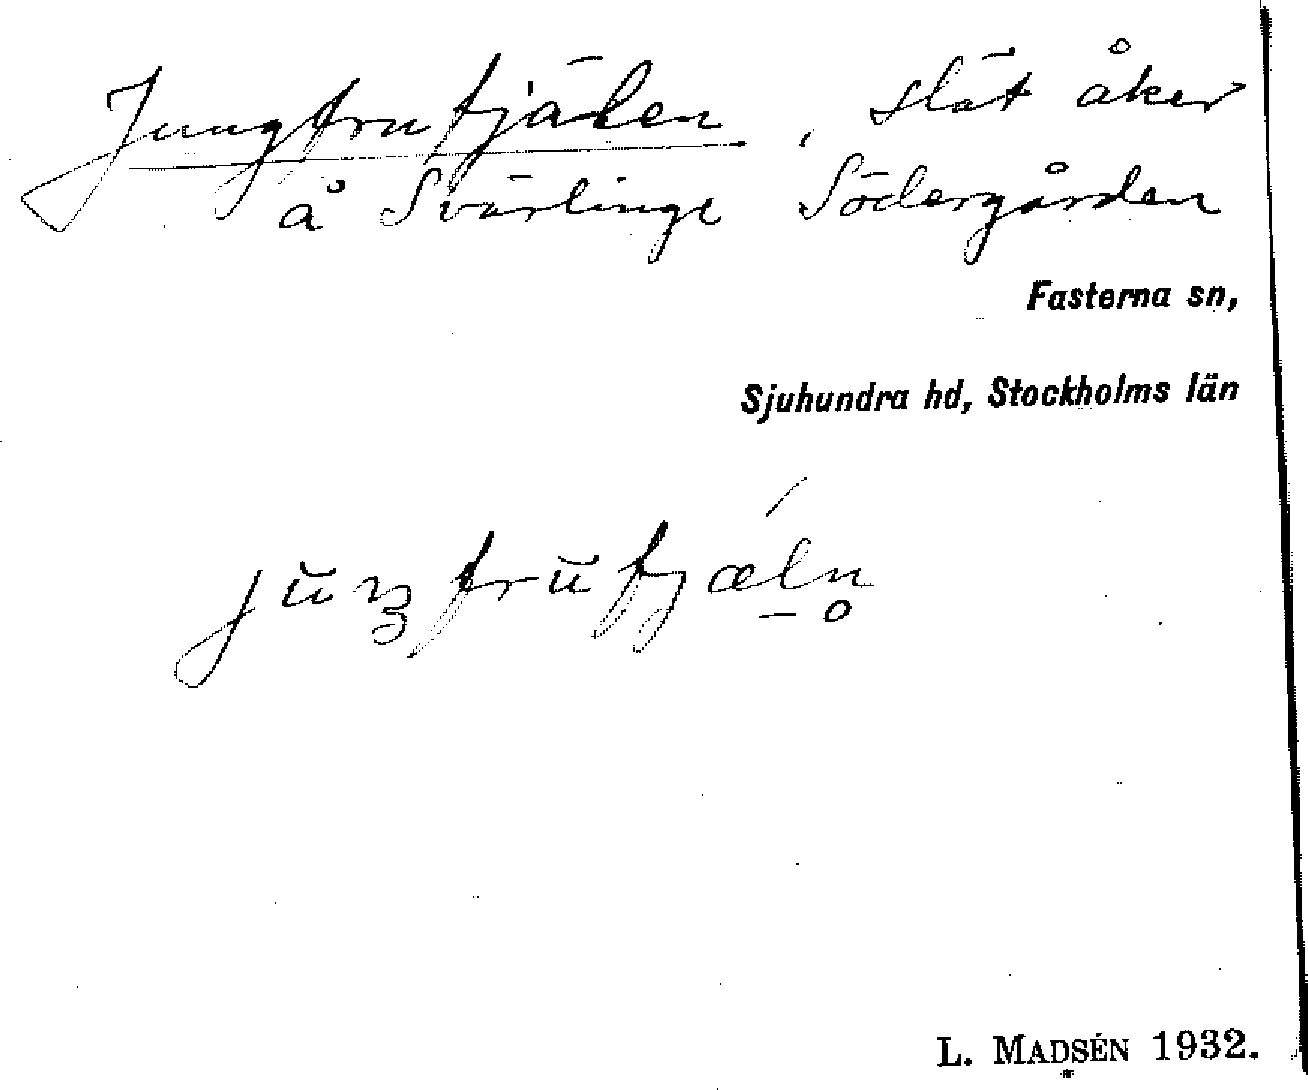 Jungfrufjälen, slät åker
å Svärlinge Södergården
Fasterna sn,
Sjuhundra hd, Stockholms län
L. MADSÉN 1932.